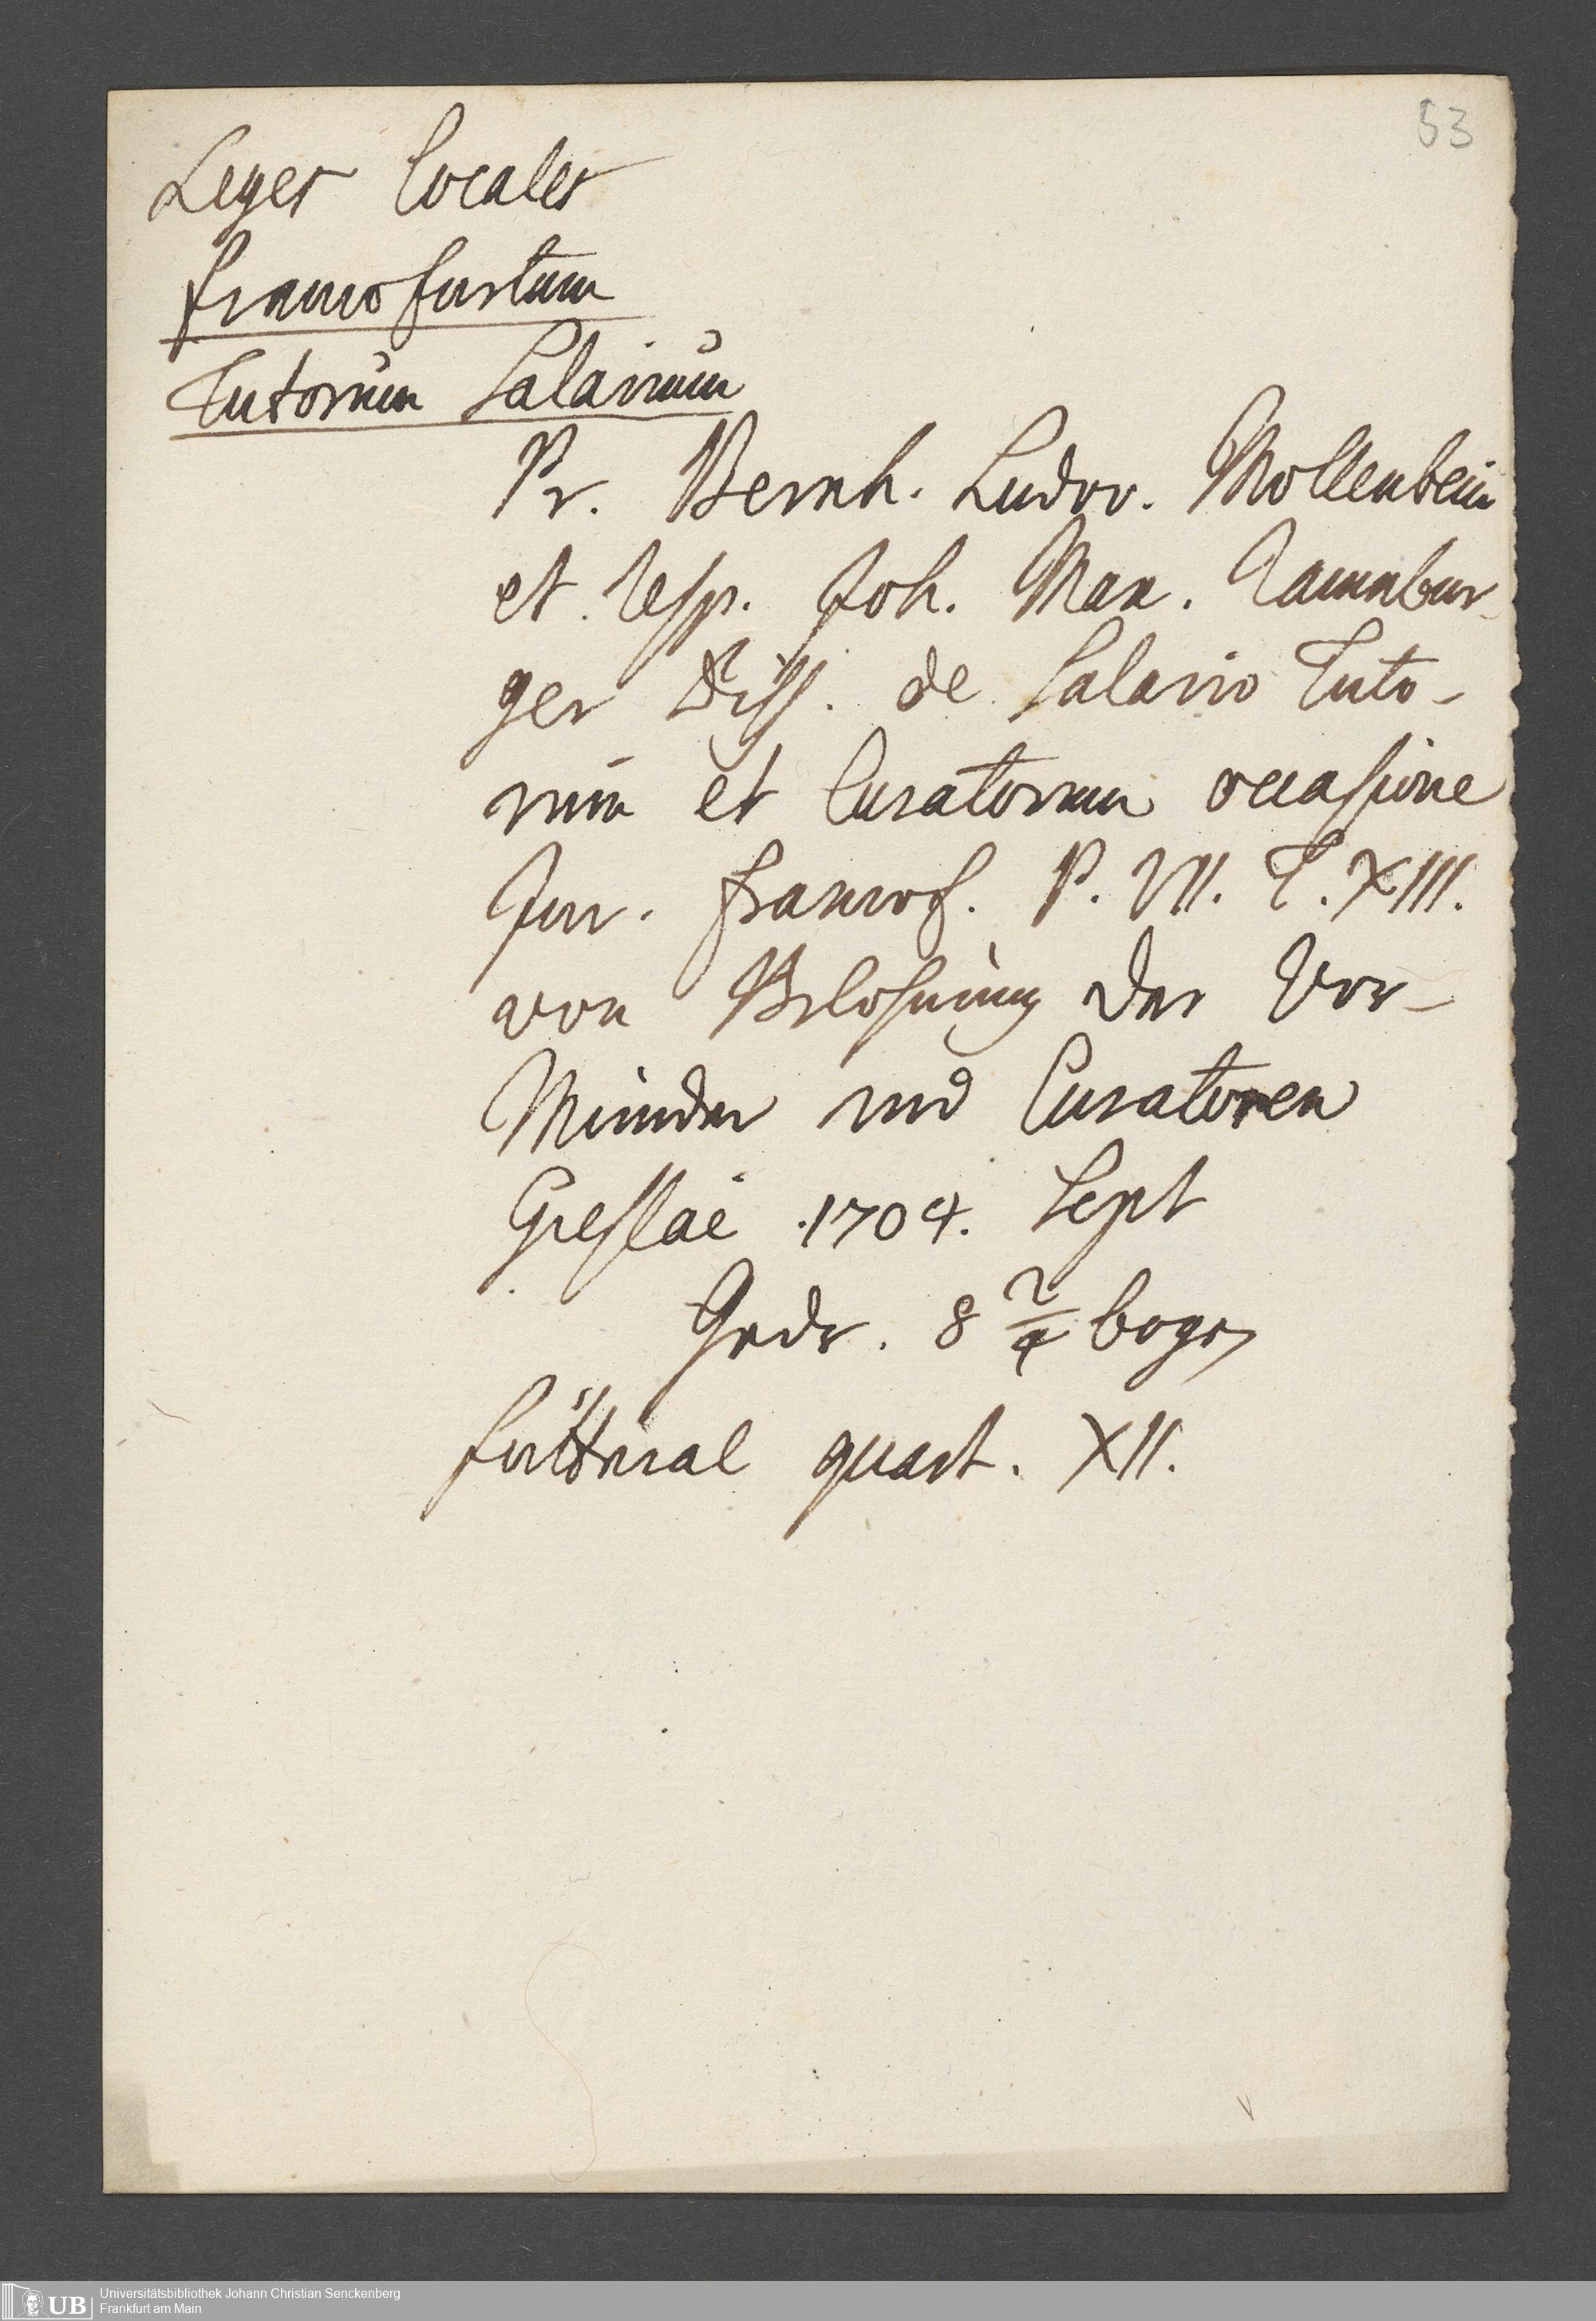 53
Leges locales
francofurtum
Tutorum Salarium
Pr. Bernh. Ludov. Mollenbein
et resp. Joh. Max.
ger Diss. de Salario Tuto-
rum et Curatorum occasione
Jur. francof. P. VII. T. XIII.
von Belohnung der Vor-
Münder und Curatoren
Giessae 1704. Sept
Gedr. 8 2/4 bogen
futteral quart. XII.
UB
Universitätsbibliothek Johann Christian Senckenberg
Frankfurt am Main